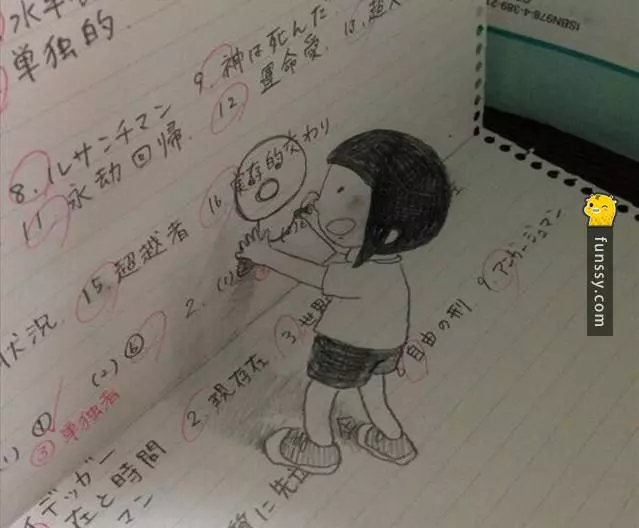 単独的.
8. ルサンチマン
9. 神は死んだ.
11. 永劫回帰.
12 運命愛.
13. 超人
状況.
15. 超越者
16. 実存的交わり
(1) ①
(2) ⑥
③ 単独者
2. 現存在
3. 世界
自由の刑
9. アンガージュマン
デッガー
在と時間
ISBN978-4-389-21
funssy.com